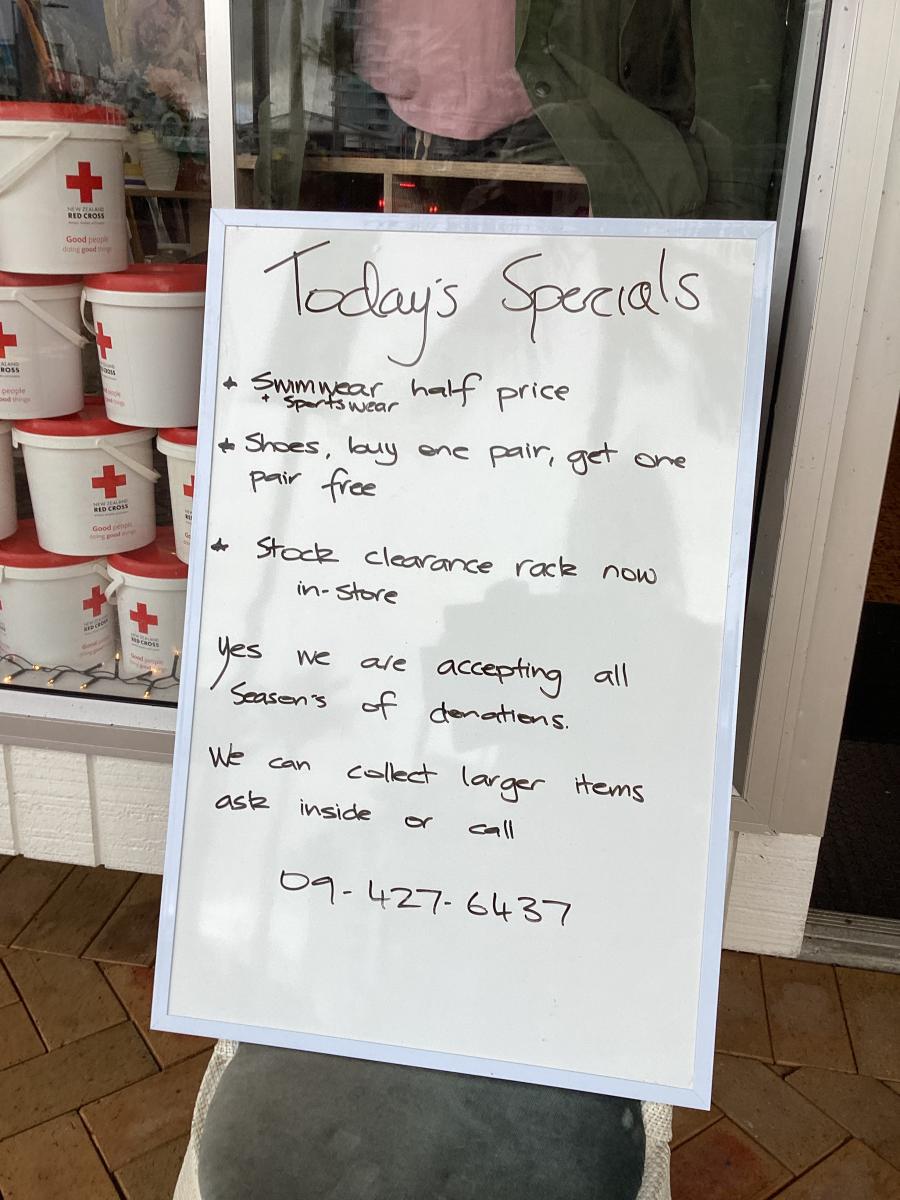 Today's Specials
* Swimwear half price
+ Sportswear
* Shoes, buy one pair, get one
pair free
* Stock clearance rack now
in-store
Yes we are accepting all
Season's of donations.
We can collect larger items
ask inside or call
09-427-6437
NEW ZEALAND
RED CROSS
Good people
doing good things
ZEALAND
CROSS
people
good things
NEW ZEALAND
RED CROSS
Good people
doing good things
NEW ZEALAND
RED CROSS
NEW ZEALAND
RED CROSS
Good people